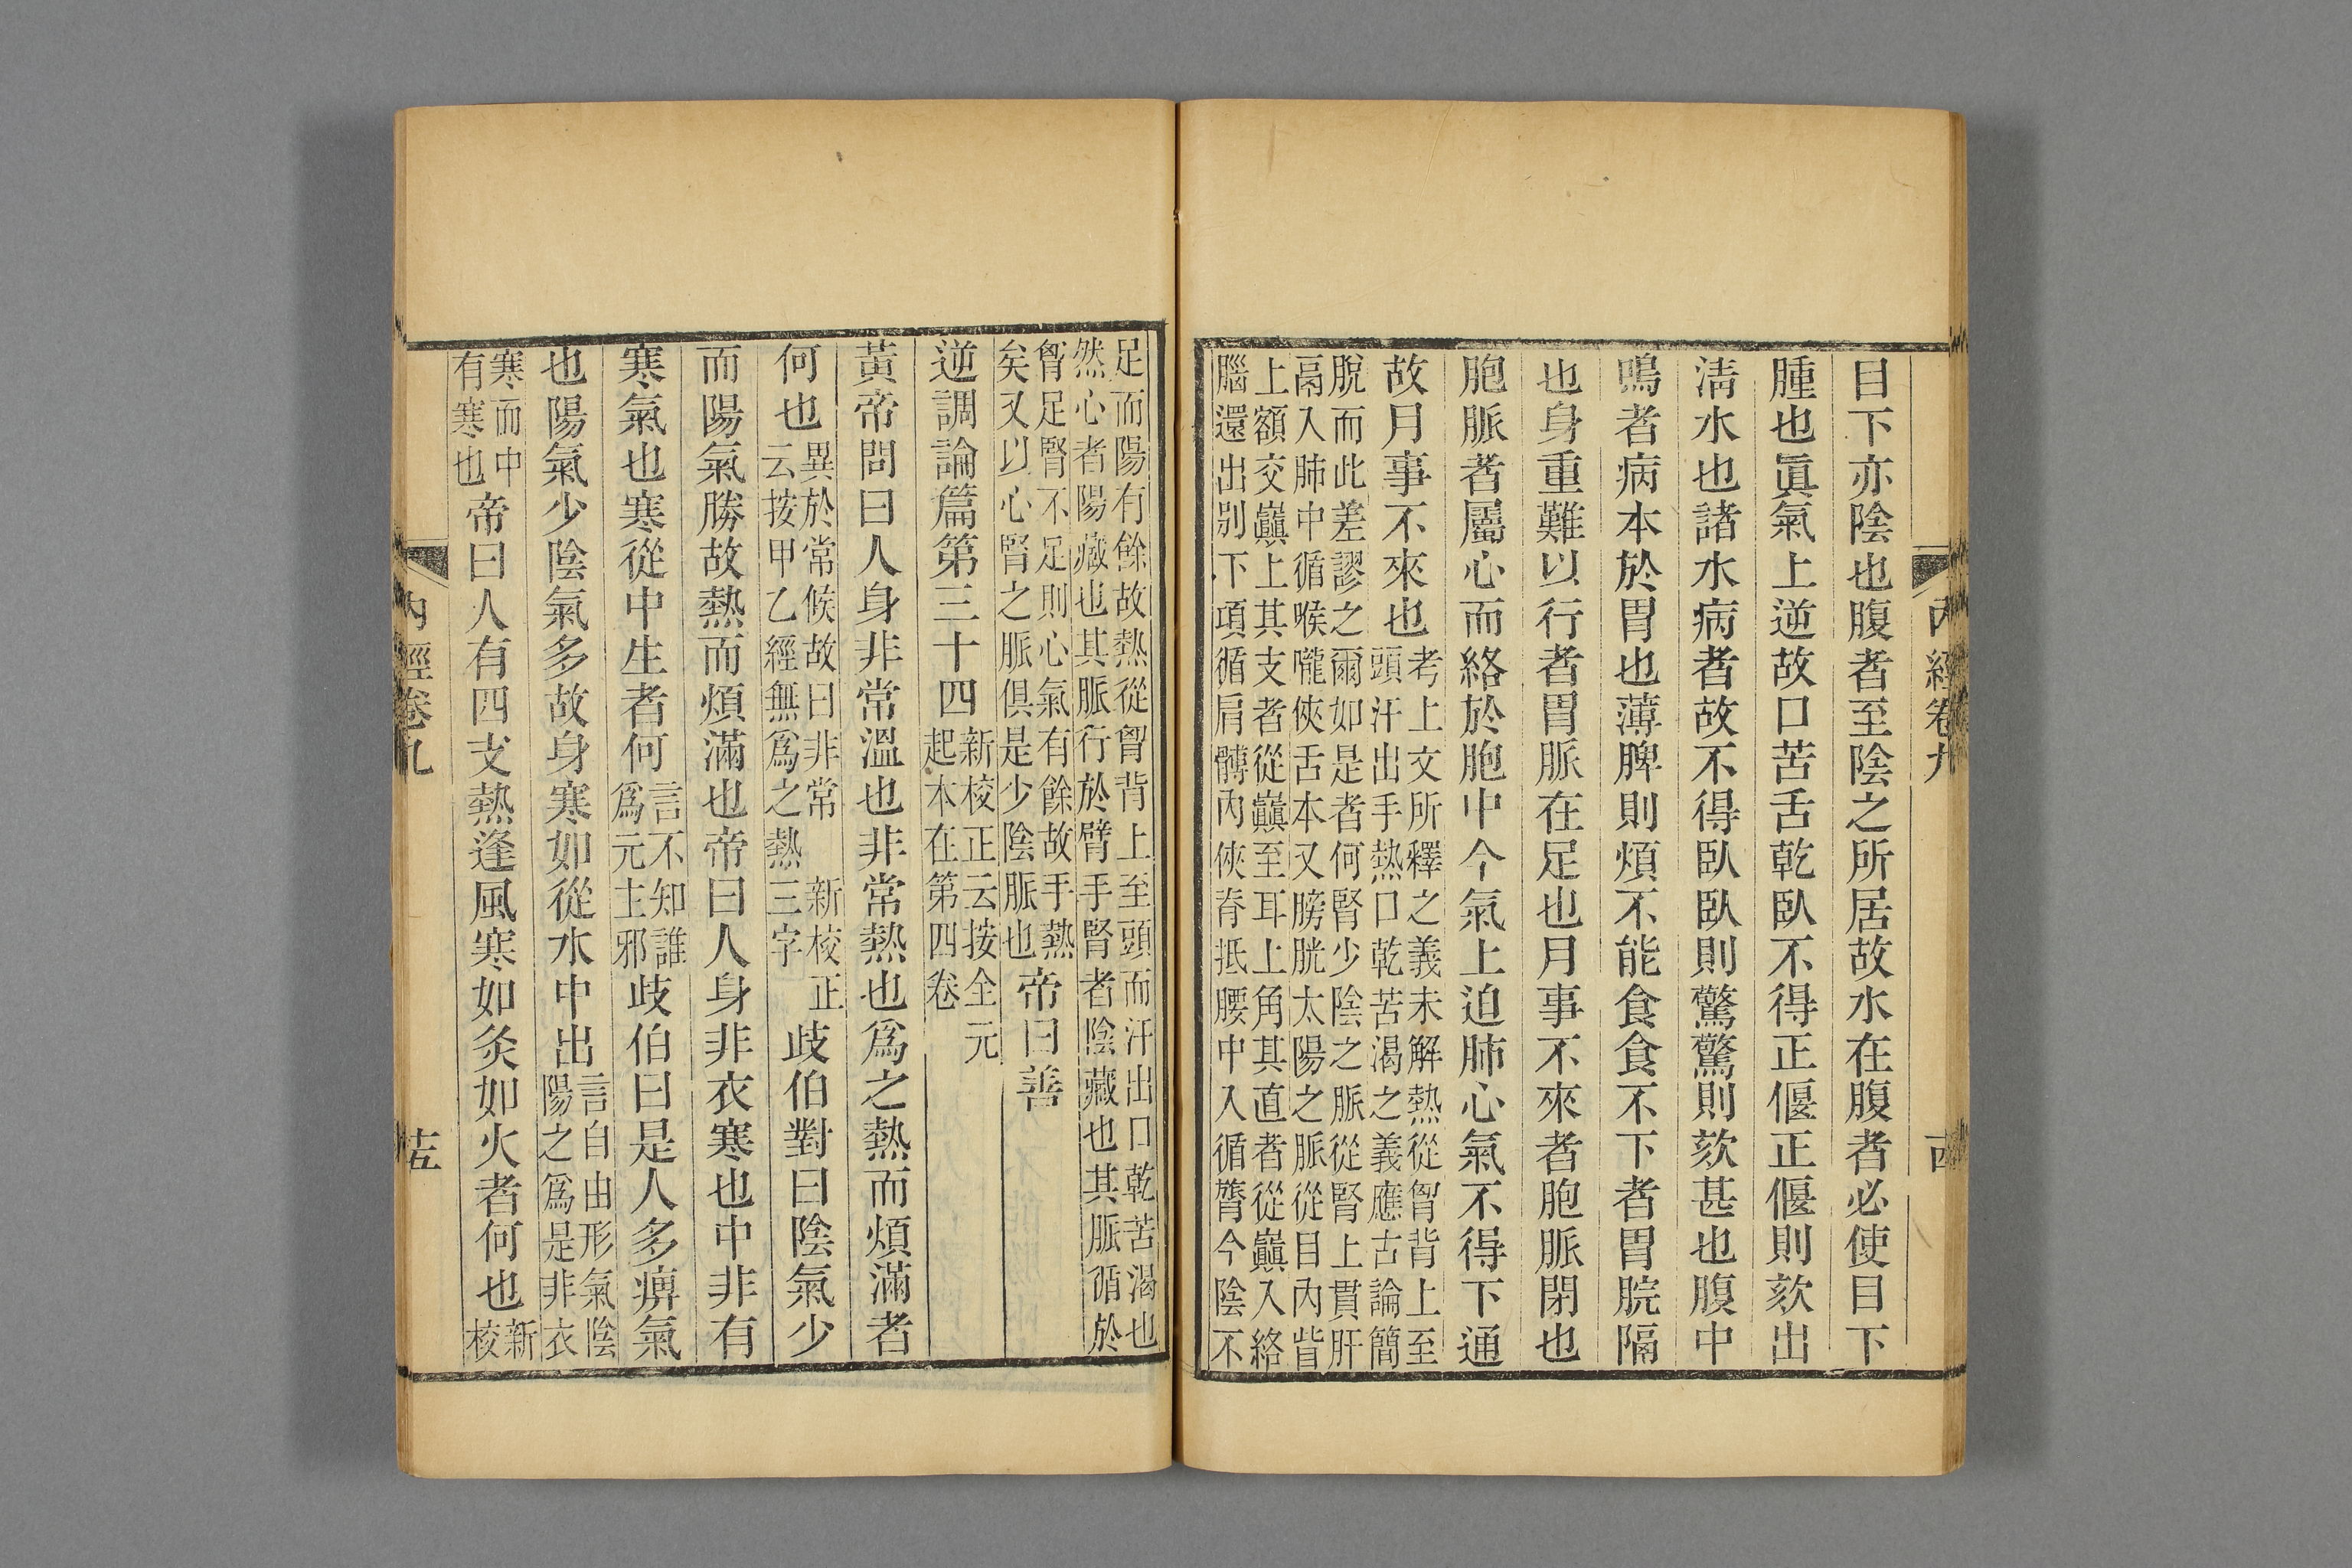 目下亦陰也腹者至陰之所居故水在腹者必使目下
腫也眞氣上逆故口苦舌乾臥不得正偃正偃則欬出
淸水也諸水病者故不得臥臥則驚驚則欬甚也腹中
鳴者病本於胃也薄脾則煩不能食食不下者胃脘隔
也身重難以行者胃脈在足也月事不來者胞脈閉也
胞脈者屬心而絡於胞中今氣上迫肺心氣不得下通
故月事不來也
考上文所釋之義未解熱從胷背上至
頭汗出手熱口乾苦渴之義應古論簡
脫而此差謬之爾如是者何腎少陰之脈從腎上貫肝
鬲入肺中循喉嚨俠舌本又膀胱太陽之脈從目內眥
上額交巔上其支者從巔至耳上角其直者從巔入絡
腦還出別下項循肩髆內俠脊抵腰中入循膂今陰不
足而陽有餘故熱從胷背上至頭而汗出口乾苦渴也
然心者陽藏也其脈行於臂手腎者陰藏也其脈循於
胷足腎不足則心氣有餘故手熱
矣又以心腎之脈俱是少陰脈也
帝曰善
逆調論篇第三十四
新校正云按全元
起本在第四卷
黃帝問曰人身非常溫也非常熱也爲之熱而煩滿者
何也
異於常候故曰非常 新校正
云按甲乙經無爲之熱三字
歧伯對曰陰氣少
而陽氣勝故熱而煩滿也帝曰人身非衣寒也中非有
寒氣也寒從中生者何
言不知誰
爲元主邪
歧伯曰是人多痹氣
也陽氣少陰氣多故身寒如從水中出
言自由形氣陰
陽之爲是非衣
寒而中
有寒也
帝曰人有四支熱逢風寒如炙如火者何也
新
校
內經卷九